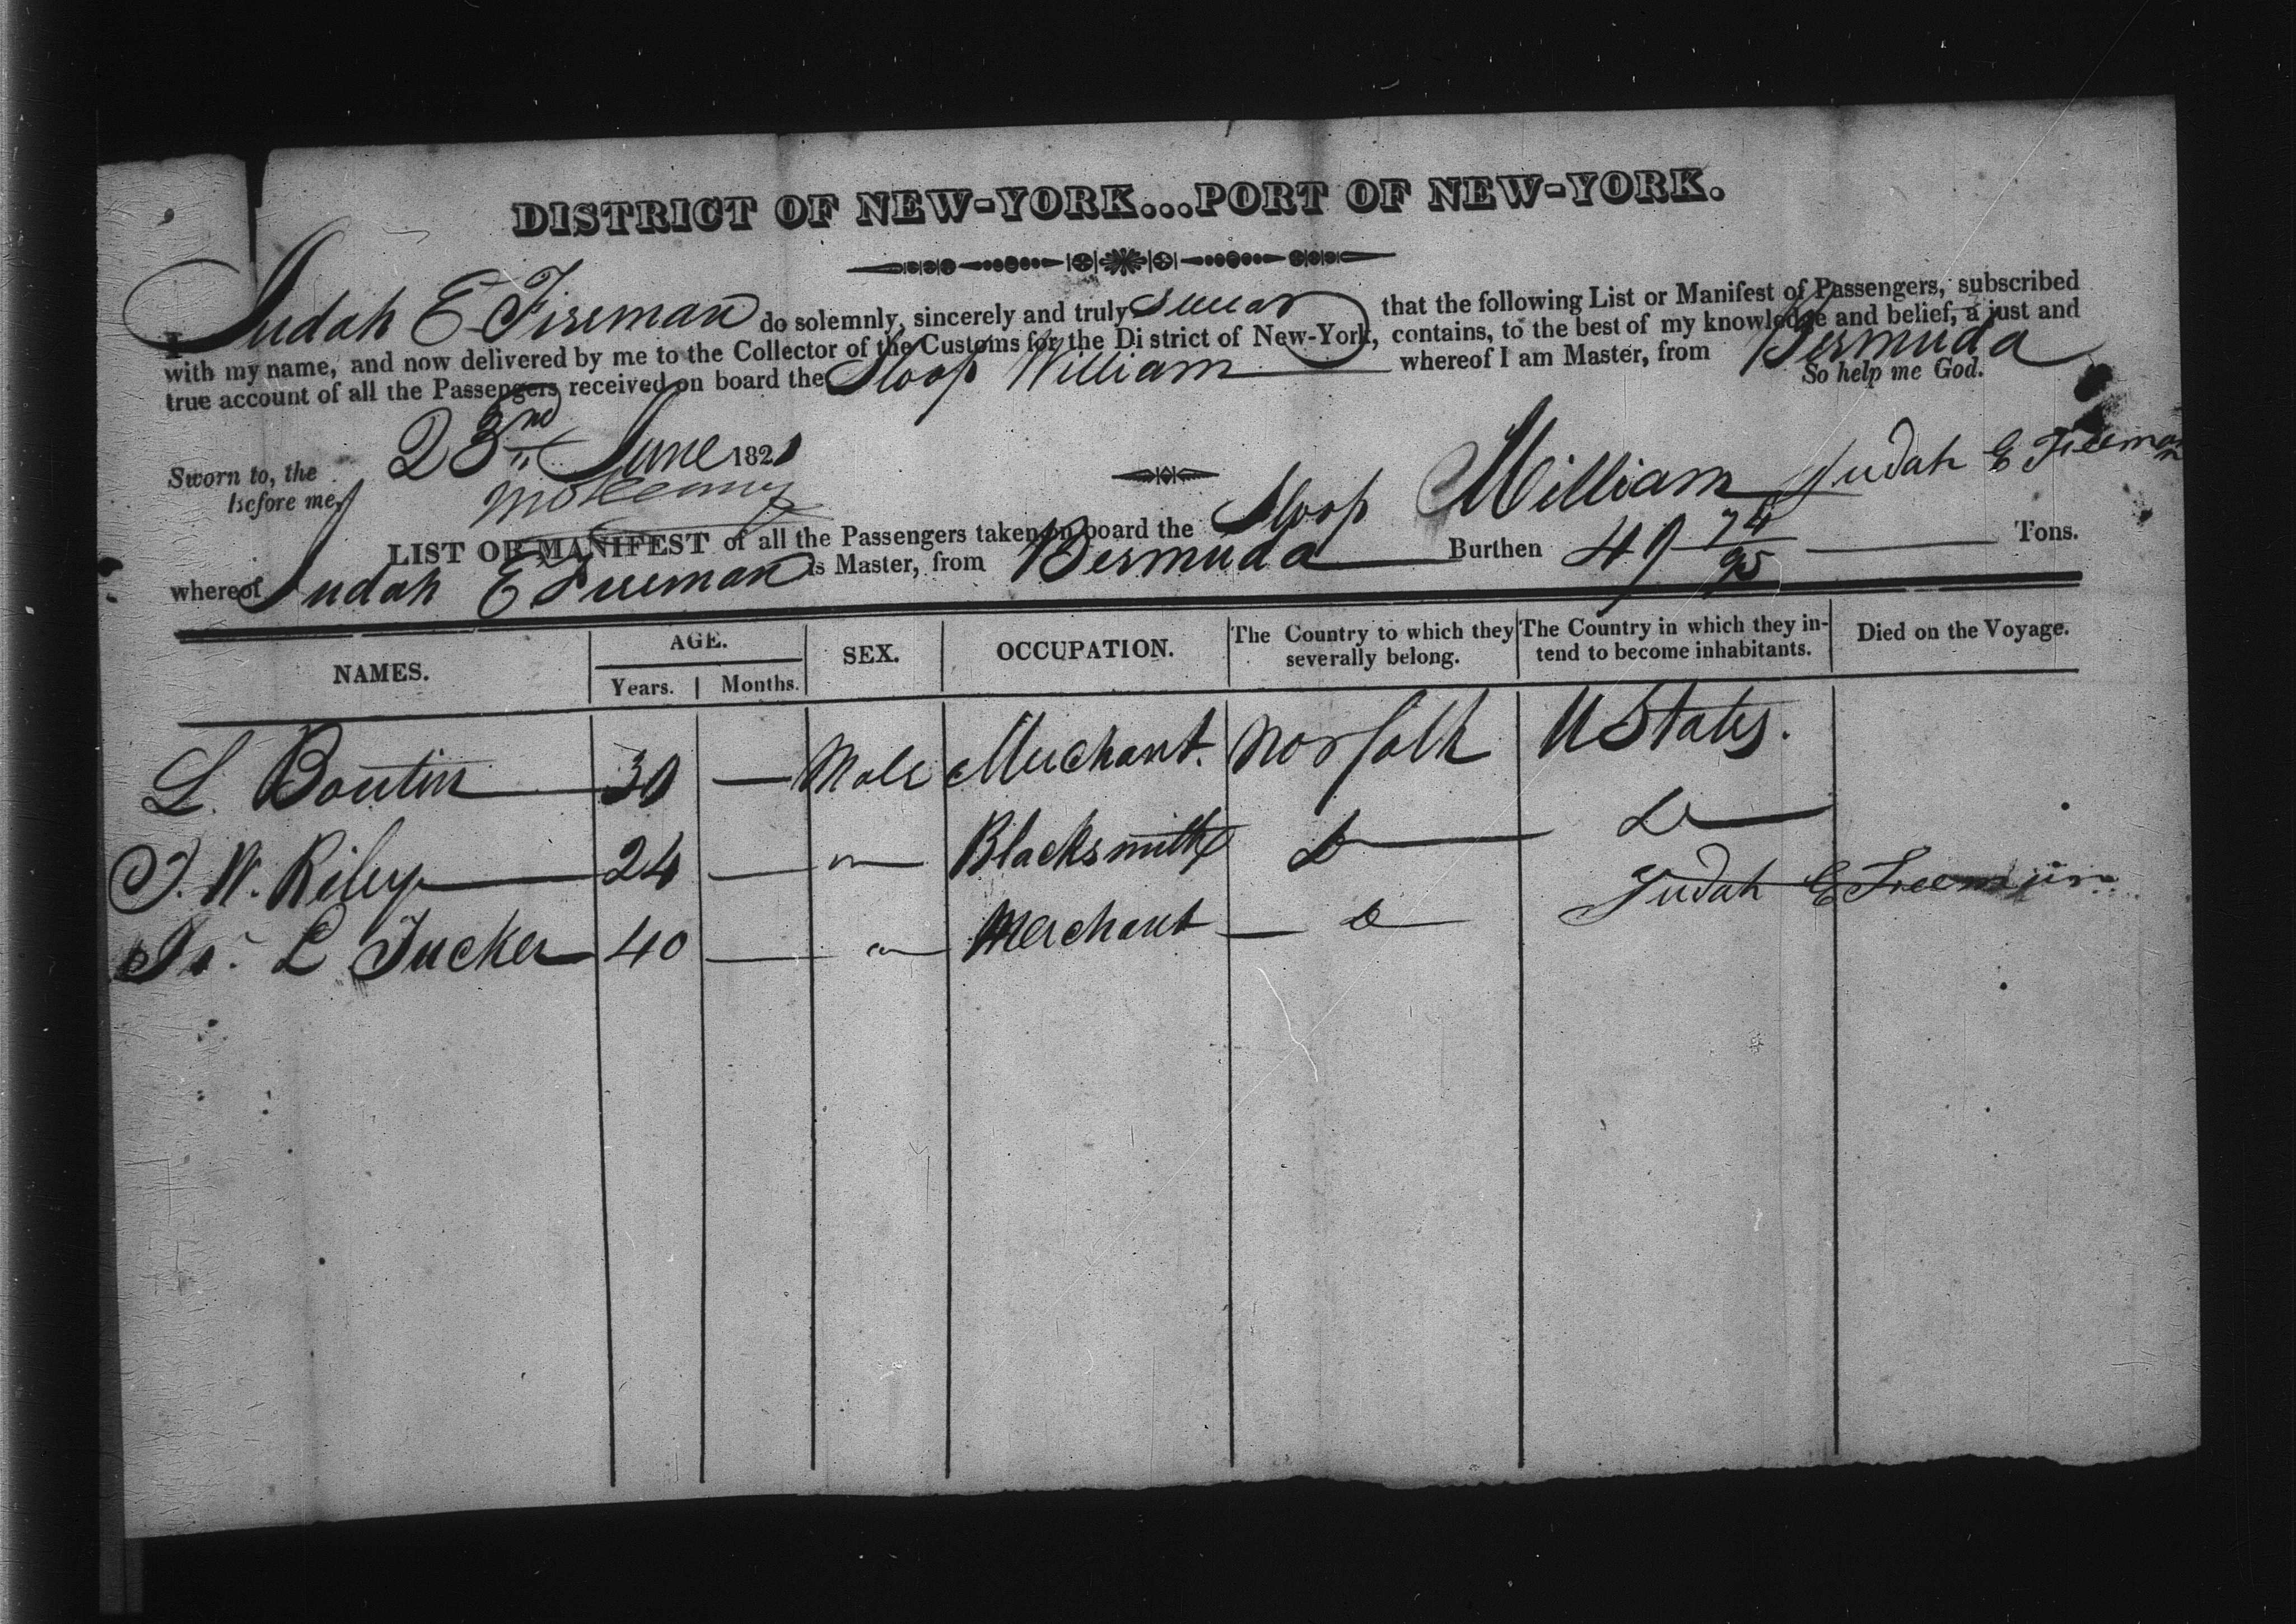 DISTRICT OF NEW-YORK...PORT OF NEW-YORK.
I Judah E Freeman do solemnly, sincerely and truly swear that the following List or Manifest of Passengers, subscribed
with my name, and now delivered by me to the Collector of the Customs for the Di strict of New-York, contains, to the best of my knowledge and belief, a just and
true account of all the Passengers received on board the Sloop William whereof I am Master, from Bermuda
So help me God.
Sworn to, the 23nd June 1821
Before me,
Judah E Freeman
LIST OR MANIFEST of all the Passengers taken on board the Sloop William Burthen 49 74/95 Tons.
whereof Judah E Freeman is Master, from Bermuda
NAMES. AGE. SEX. OCCUPATION. The Country to which they severally belong. The Country in which they in- tend to become inhabitants. Died on the Voyage.
Years. Months.
L. Boutin 30 — Male Merchant. Norfolk U States.
W. Riley 24 — " Blacksmith Do Do
L Tucker 40 — " Merchant Do
Judah E Freeman